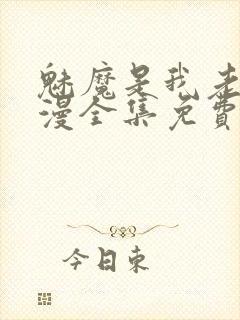 魅魔是我老
漫全集免费
今日东